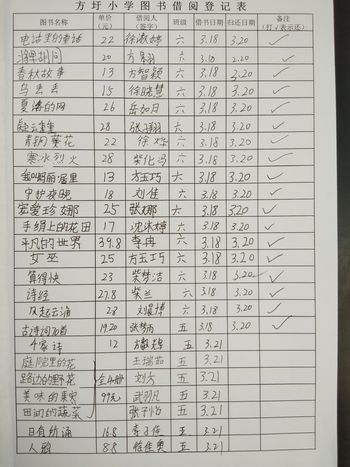 方圩小学图书借阅登记表
图书名称 单价(元) 借阅人(签字) 班级 借书日期 归还日期 备注(打√表示还)
电话里的童话 22 徐淑婷 六 3.18 3.20 ✓
胡同 20 方 六 3.18 3.20 ✓
春秋故事 13 方智颖 六 3.18 3.20 ✓
乌丢丢 15 徐晓慧 六 3.18 3.20 ✓
夏洛的网 26 岳如月 六 3.18 3.20 ✓
疑云重重 28 张 六 3.18 3.20 ✓
青铜葵花 22 徐烁 六 3.18 3.20 ✓
寒冰烈火 28 柴化冯 六 3.18 3.20 ✓
13 方玉巧 六 3.18 3.20 ✓
守护夜晚 18 刘佳 六 3.18 3.20 ✓
宠爱珍娜 25 张娜 六 3.18 3.20 ✓
手绢上的花田 17 沈沐婷 六 3.18 3.20 ✓
平凡的世界 39.8 李冉 六 3.18 3.20 ✓
女巫 25 方玉巧 六 3.18 3.20 ✓
算得快 23 柴梦洁 六 3.18 3.20 ✓
诗经 27.8 柴兰 六 3.18 3.20 ✓
风起云涌 28 刘耀博 六 3.18 3.20 ✓
古诗词70首 19.20 张梦炳 五 3.18 3.20 ✓
千家诗 12 五 3.21
庭院里的花 王瑞茹 五 3.21
路边的野花 全4册 刘方 五 3.21
美味的果实 99元 武羽凡 五 3.21
田间的蔬菜 张子怡 五 3.21
日有所诵 16.8 李子依 五 3.21
人鸦 8.8 五 3.21